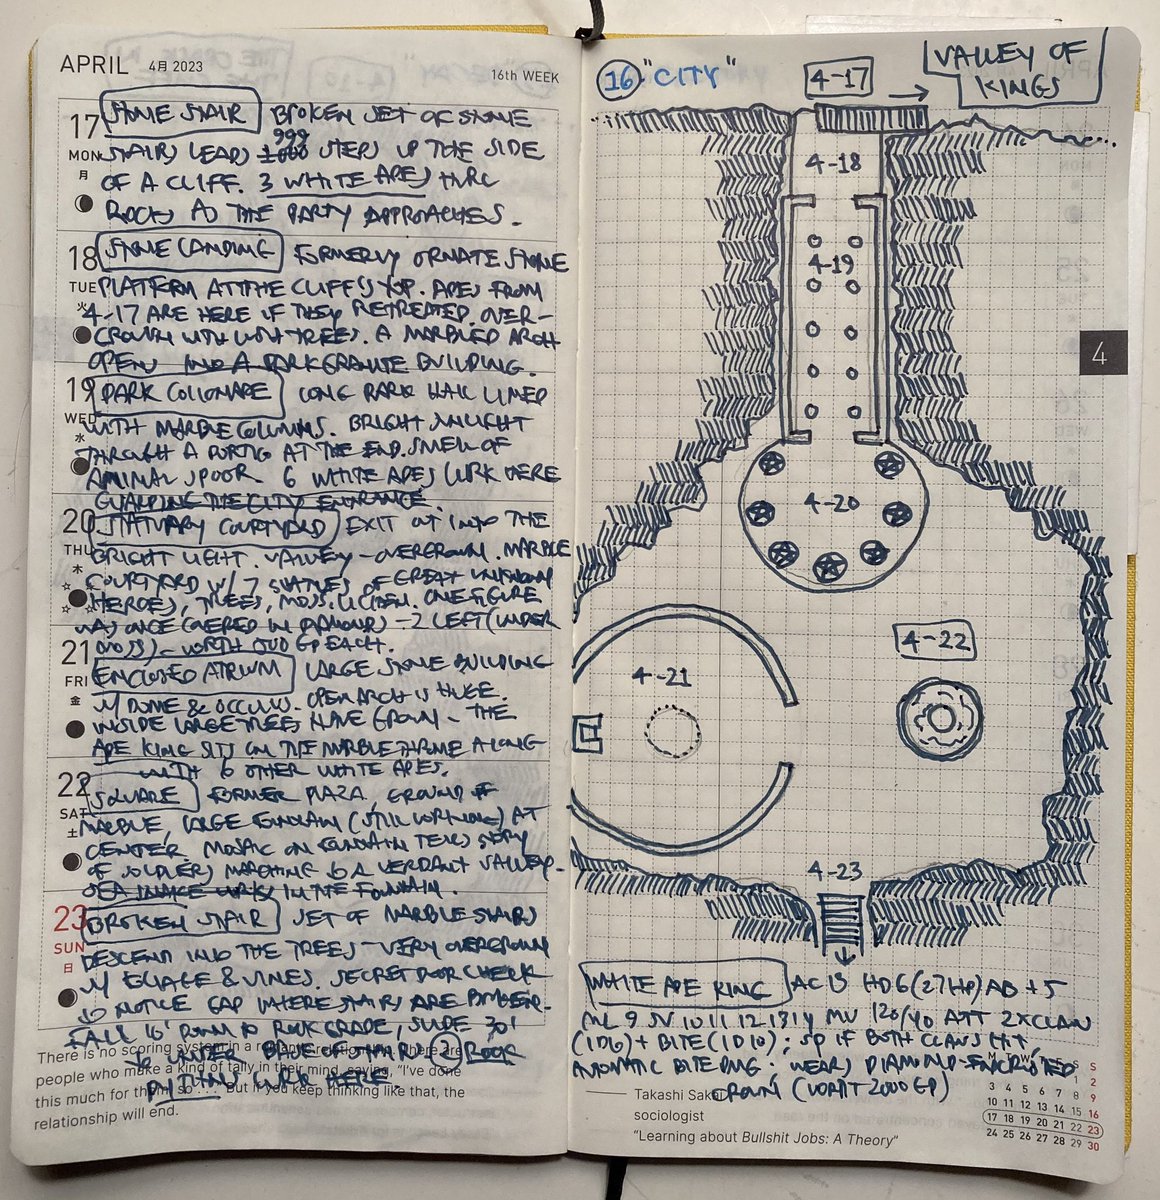 APRIL 4月 2023
16th WEEK
17
MON
月
STONE STAIR BROKEN SET OF STONE
STAIRS LEADS 999 STEPS UP THE SIDE
OF A CLIFF. 3 WHITE APES HURL
ROCKS AS THE PARTY APPROACHES.
18
TUE
火
STONE LANDING FORMERLY ORNATE STONE
PLATFORM AT THE CLIFF'S TOP. APES FROM
4-17 ARE HERE IF THEY RETREATED. OVER-
GROWN WITH TREES. A MARBLED ARCH
OPENS INTO A DARK GRANITE BUILDING.
19
WED
水
DARK COLLONADE LONG DARK HALL LINED
WITH MARBLE COLUMNS. BRIGHT SUNLIGHT
THROUGH A PORTICO AT THE END. SMELL OF
ANIMAL SPOOR 6 WHITE APES LURK HERE
GUARDING THE CITY ENTRANCE.
20
THU
木
STATUARY COURTYARD EXIT OUT INTO THE
BRIGHT LIGHT. VALLEY - OVERGROWN. MARBLE
COURTYARD W/ 7 STATUES OF GREAT UNKNOWN
HEROES, TREES, MOSS, LICHEN. ONE FIGURE
WAS ONCE COVERED IN DIAMONDS - 2 LEFT (UNDER
MOSS) - WORTH GP EACH.
21
FRI
金
ENCLOSED ATRIUM LARGE STONE BUILDING
W/ DOME & OCCULUS. OPEN ARCH IS HUGE.
INSIDE LARGE TREES HAVE GROWN - THE
APE KING SITS ON THE MARBLE THRONE ALONG
WITH 6 OTHER WHITE APES.
22
SAT
土
SQUARE FORMER PLAZA, GROUND OF
MARBLE, LARGE FOUNTAIN (STILL WORKING) AT
CENTER. MOSAIC ON FOUNTAIN TELLS STORY
OF SOLDIERS MARCHING TO A VERDANT VALLEY.
SEA SNAKE LURKS IN THE FOUNTAIN.
23
SUN
日
BROKEN STAIR SET OF MARBLE STAIRS
DESCEND INTO THE TREES - VERY OVERGROWN
W/ FOLIAGE & VINES. SECRET DOOR CHECK
TO NOTICE GAP WHERE STAIRS ARE BROKEN.
FALL 10' DOWN TO ROCK GRADE, SLIDE 30'
2 ROCK
PYTHONS LURK HERE.
There is no scoring system in a
people who make a kind of tally in their mind, saying, "I've done
this much for them, so . . ." But if you keep thinking like that, the
relationship will end.
16 "CITY"
4-17 → VALLEY OF
KINGS
4-18
4-19
4
4-20
4-22
4-21
4-23
WHITE APE KING AC 15 HD 6 (27 HP) AB +5
ML 9 SV 10 11 12 13 14 MV 120/40 ATT 2XCLAW
(1D6) + BITE (1D10); SP IF BOTH CLAWS HIT
AUTOMATIC BITE DMG. WEARS DIAMOND-ENCRUSTED
CROWN (WORTH 2000 GP)
M W T S S
1 2
3 4 5 6 7 8 9
10 11 12 13 14 15 16
17 18 19 20 21 22 23
24 25 26 27 28 29 30
Takashi
sociologist
"Learning about Bullshit Jobs: A Theory"